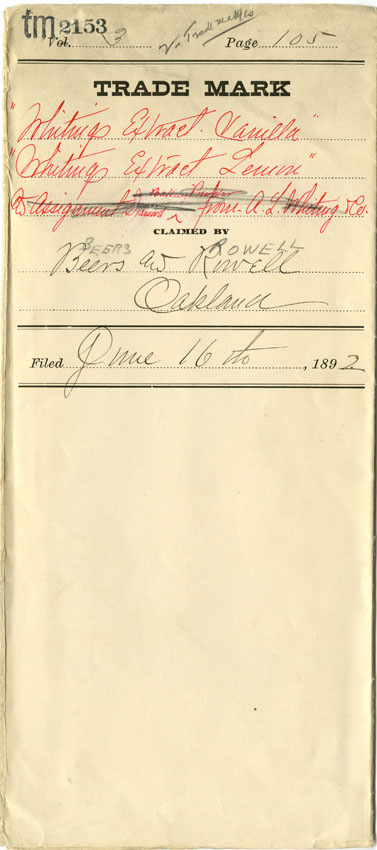 tm 2153
Vol. 3 Trade marks Page 105
TRADE MARK
"Whitings Extract Vanilla"
"Whitings Extract Lemon"
as Assignment from A. L. Whiting & Co.
CLAIMED BY
BEERS ROWELL
Beers and Rowell
Oakland
Filed June 16th, 1892